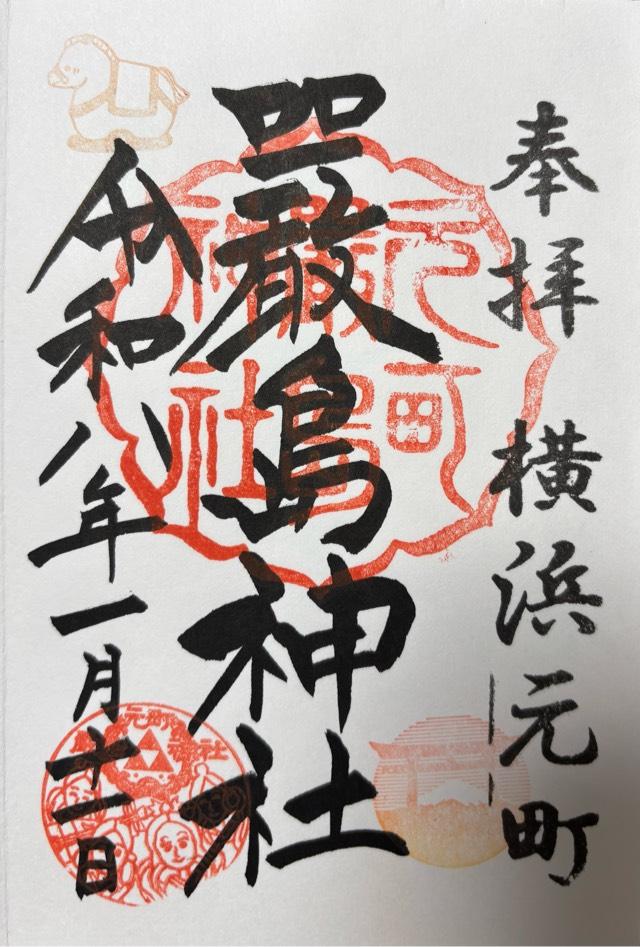 奉拝 横浜元町
嚴島神社
令和八年一月十一日
元町嚴島神社
元町嚴島神社